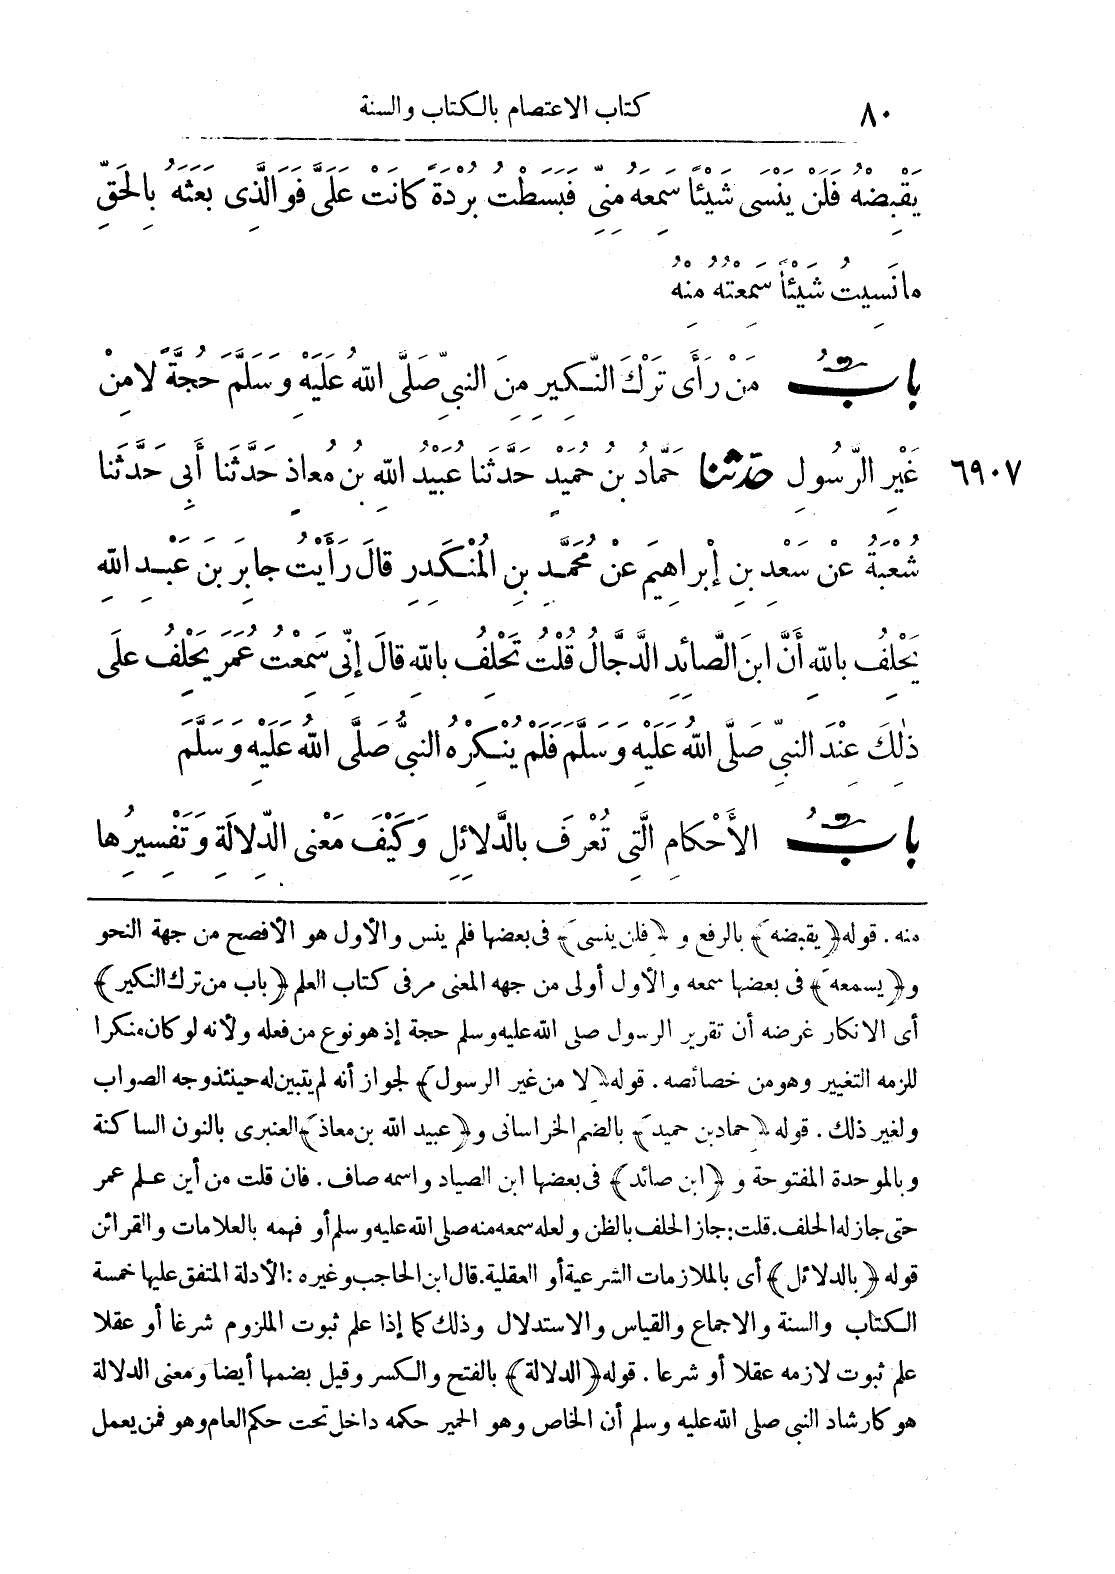 ٨٠ كتاب الاعتصام بالكتاب والسنة
يَقْبِضْهُ فَلَنْ يَنْسَى شَيْئًا سَمِعَهُ مِنِّي فَبَسَطْتُ بُرْدَةً كَانَتْ عَلَيَّ فَوَالَّذِى بَعَثَهُ بِالْحَقِّ
مانَسِيتُ شَيْئًا سَمِعْتُهُ مِنْهُ
بابُ مَنْ رَأَى تَرْكَ النَّكِيرِ مِنَ النبيِّ صَلَّى اللهُ عَلَيْهِ وَسَلَّمَ حُجَّةً لامِنْ
غَيْرِ الرَّسُولِ حَدّثنا حَمَّادُ بنُ حُمَيْدٍ حَدَّثَنا عُبَيْدُ اللهِ بنُ مُعاذٍ حَدَّثَنا أَبِى حَدَّثَنا ٦٩٠٧
شُعْبَةُ عَنْ سَعْدِ بنِ إبْراهِيمَ عَنْ مُحَمَّدِ بنِ المُنْكَدِرِ قالَ رَأَيْتُ جابِرَ بنَ عَبْدِ اللهِ
يَحْلِفُ باللهِ أَنَّ ابنَ الصَّائِدِ الدَّجَّالُ قُلْتُ تَحْلِفُ باللهِ قالَ إنِّى سَمِعْتُ عُمَرَ يَحْلِفُ علَى
ذٰلِكَ عِنْدَ النبيِّ صَلَّى اللهُ عَلَيْهِ وَسَلَّمَ فَلَمْ يُنْكِرْهُ النبيُّ صَلَّى اللهُ عَلَيْهِ وَسَلَّمَ
بابُ الأَحْكامِ الَّتِى تُعْرَفُ بالدَّلائِلِ وَكَيْفَ مَعْنَى الدِّلالَةِ وَتَفْسِيرُها
منه . قوله ﴿يقبضه﴾ بالرفع و ﴿فلن ينسى﴾ فى بعضها فلم ينس والأول هو الأفصح من جهة النحو
و ﴿يسمعه﴾ فى بعضها سمعه والأول أولى من جهه المعنى مر فى كتاب العلم ﴿باب من ترك النكير﴾
أى الانكار غرضه أن تقرير الرسول صلى الله عليه وسلم حجة إذ هو نوع من فعله ولأنه لو كان منكرا
للزمه التغيير وهو من خصائصه . قوله ﴿لا من غير الرسول﴾ لجواز أنه لم يتبين له حينئذ وجه الصواب
ولغير ذلك . قوله ﴿حماد بن حميد﴾ بالضم الخراسانى و ﴿عبيد الله بن معاذ﴾ العنبرى بالنون الساكنة
وبالموحدة المفتوحة و ﴿ابن صائد﴾ فى بعضها ابن الصياد واسمه صاف . فان قلت من أين علم عمر
حتى جاز له الحلف . قلت : جاز الحلف بالظن ولعله سمعه منه صلى الله عليه وسلم أو فهمه بالعلامات والقرائن
قوله ﴿بالدلائل﴾ أى بالملازمات الشرعية أو العقلية . قال ابن الحاجب وغيره : الأدلة المتفق عليها خمسة
الكتاب والسنة والاجماع والقياس والاستدلال وذلك كما إذا علم ثبوت الملزوم شرعا أو عقلا
علم ثبوت لازمه عقلا أو شرعا . قوله ﴿الدلالة﴾ بالفتح والكسر وقيل بضمها أيضا ومعنى الدلالة
هو كارشاد النبى صلى الله عليه وسلم أن الخاص وهو الحمير حكمه داخل تحت حكم العام وهو فمن يعمل